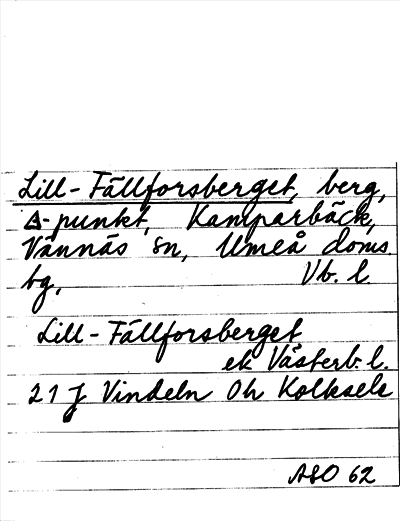 Lill-Fällforsberget, berg,
Δ-punkt, Kamparbäck,
Vännäs sn, Umeå doms.
bg, Vb. l.
Lill-Fällforsberget
ek Västerb. l.
21 J Vindeln Oh Kolksele
ASO 62